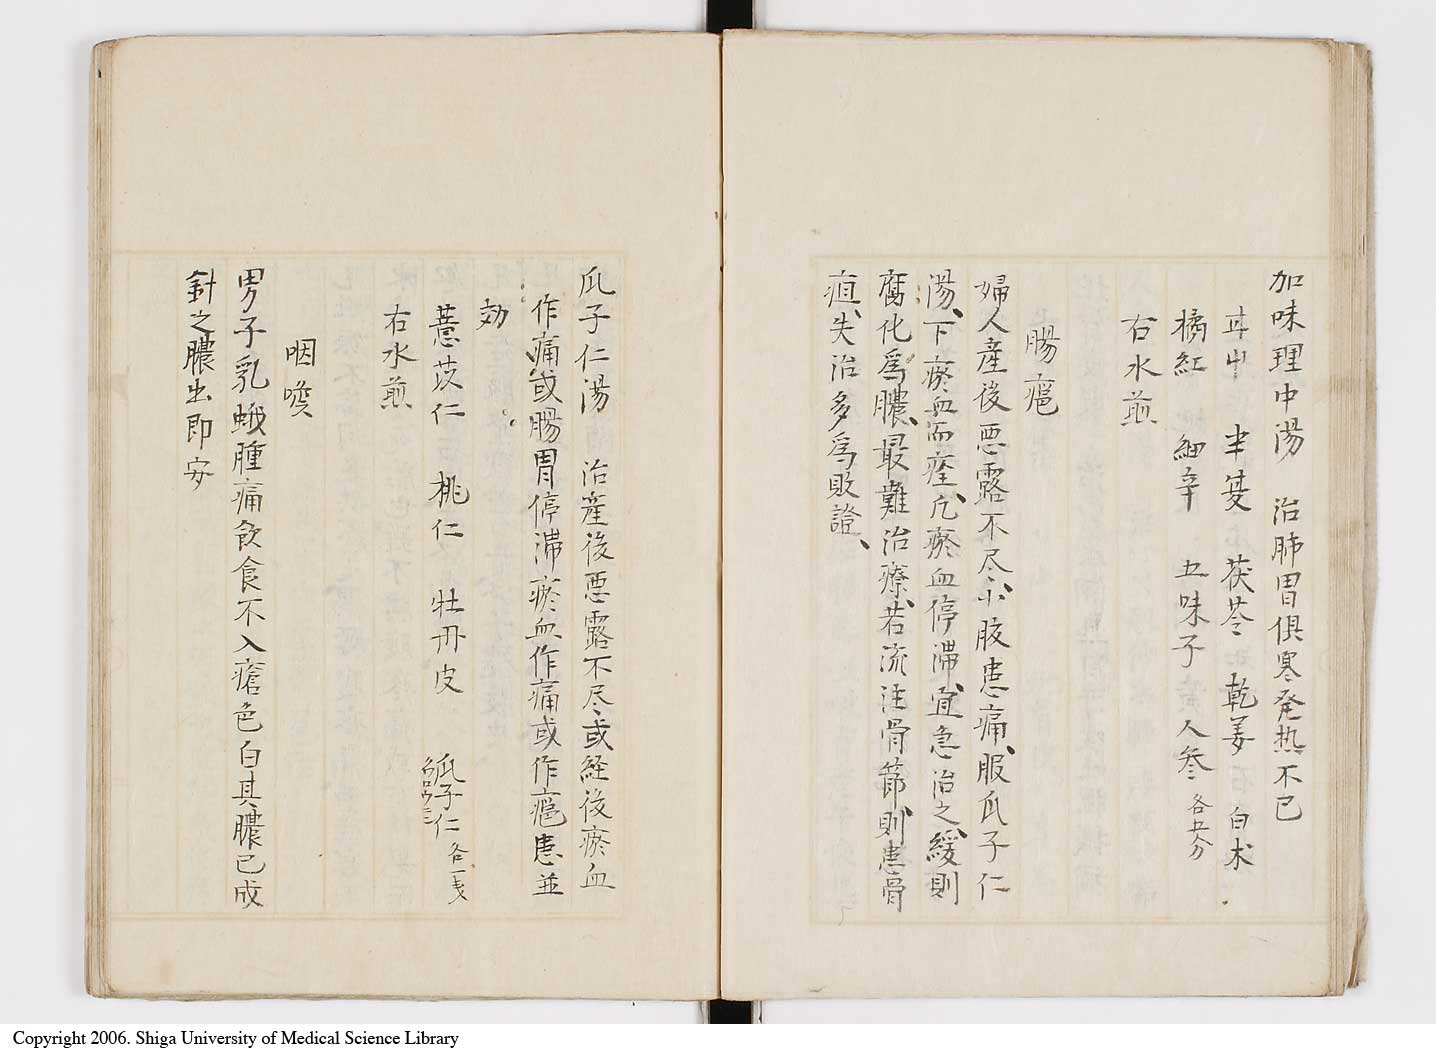 加味理中湯　治肺胃俱寒発热不已
甘艸　半夏　茯苓　乾姜　白术
橘紅　細辛　五味子　人参各五分
右水煎
腸癰
婦人産後悪露不尽、小腹患痛、服瓜子仁
湯、下瘀血而痊、凡瘀血停滞、宜急治之、緩則
腐化為膿、最難治療、若流注骨節、則患骨
疽、失治多為敗證、
瓜子仁湯　治産後悪露不尽、或経後瘀血
作痛或腸胃停滞瘀血作痛或作癰患並
効
薏苡仁　桃仁　牡丹皮　瓜子仁各一戔
右水煎
咽喉
男子乳蛾腫痛飲食不入瘡色白其膿已成
針之膿出即安
Copyright 2006. Shiga University of Medical Science Library